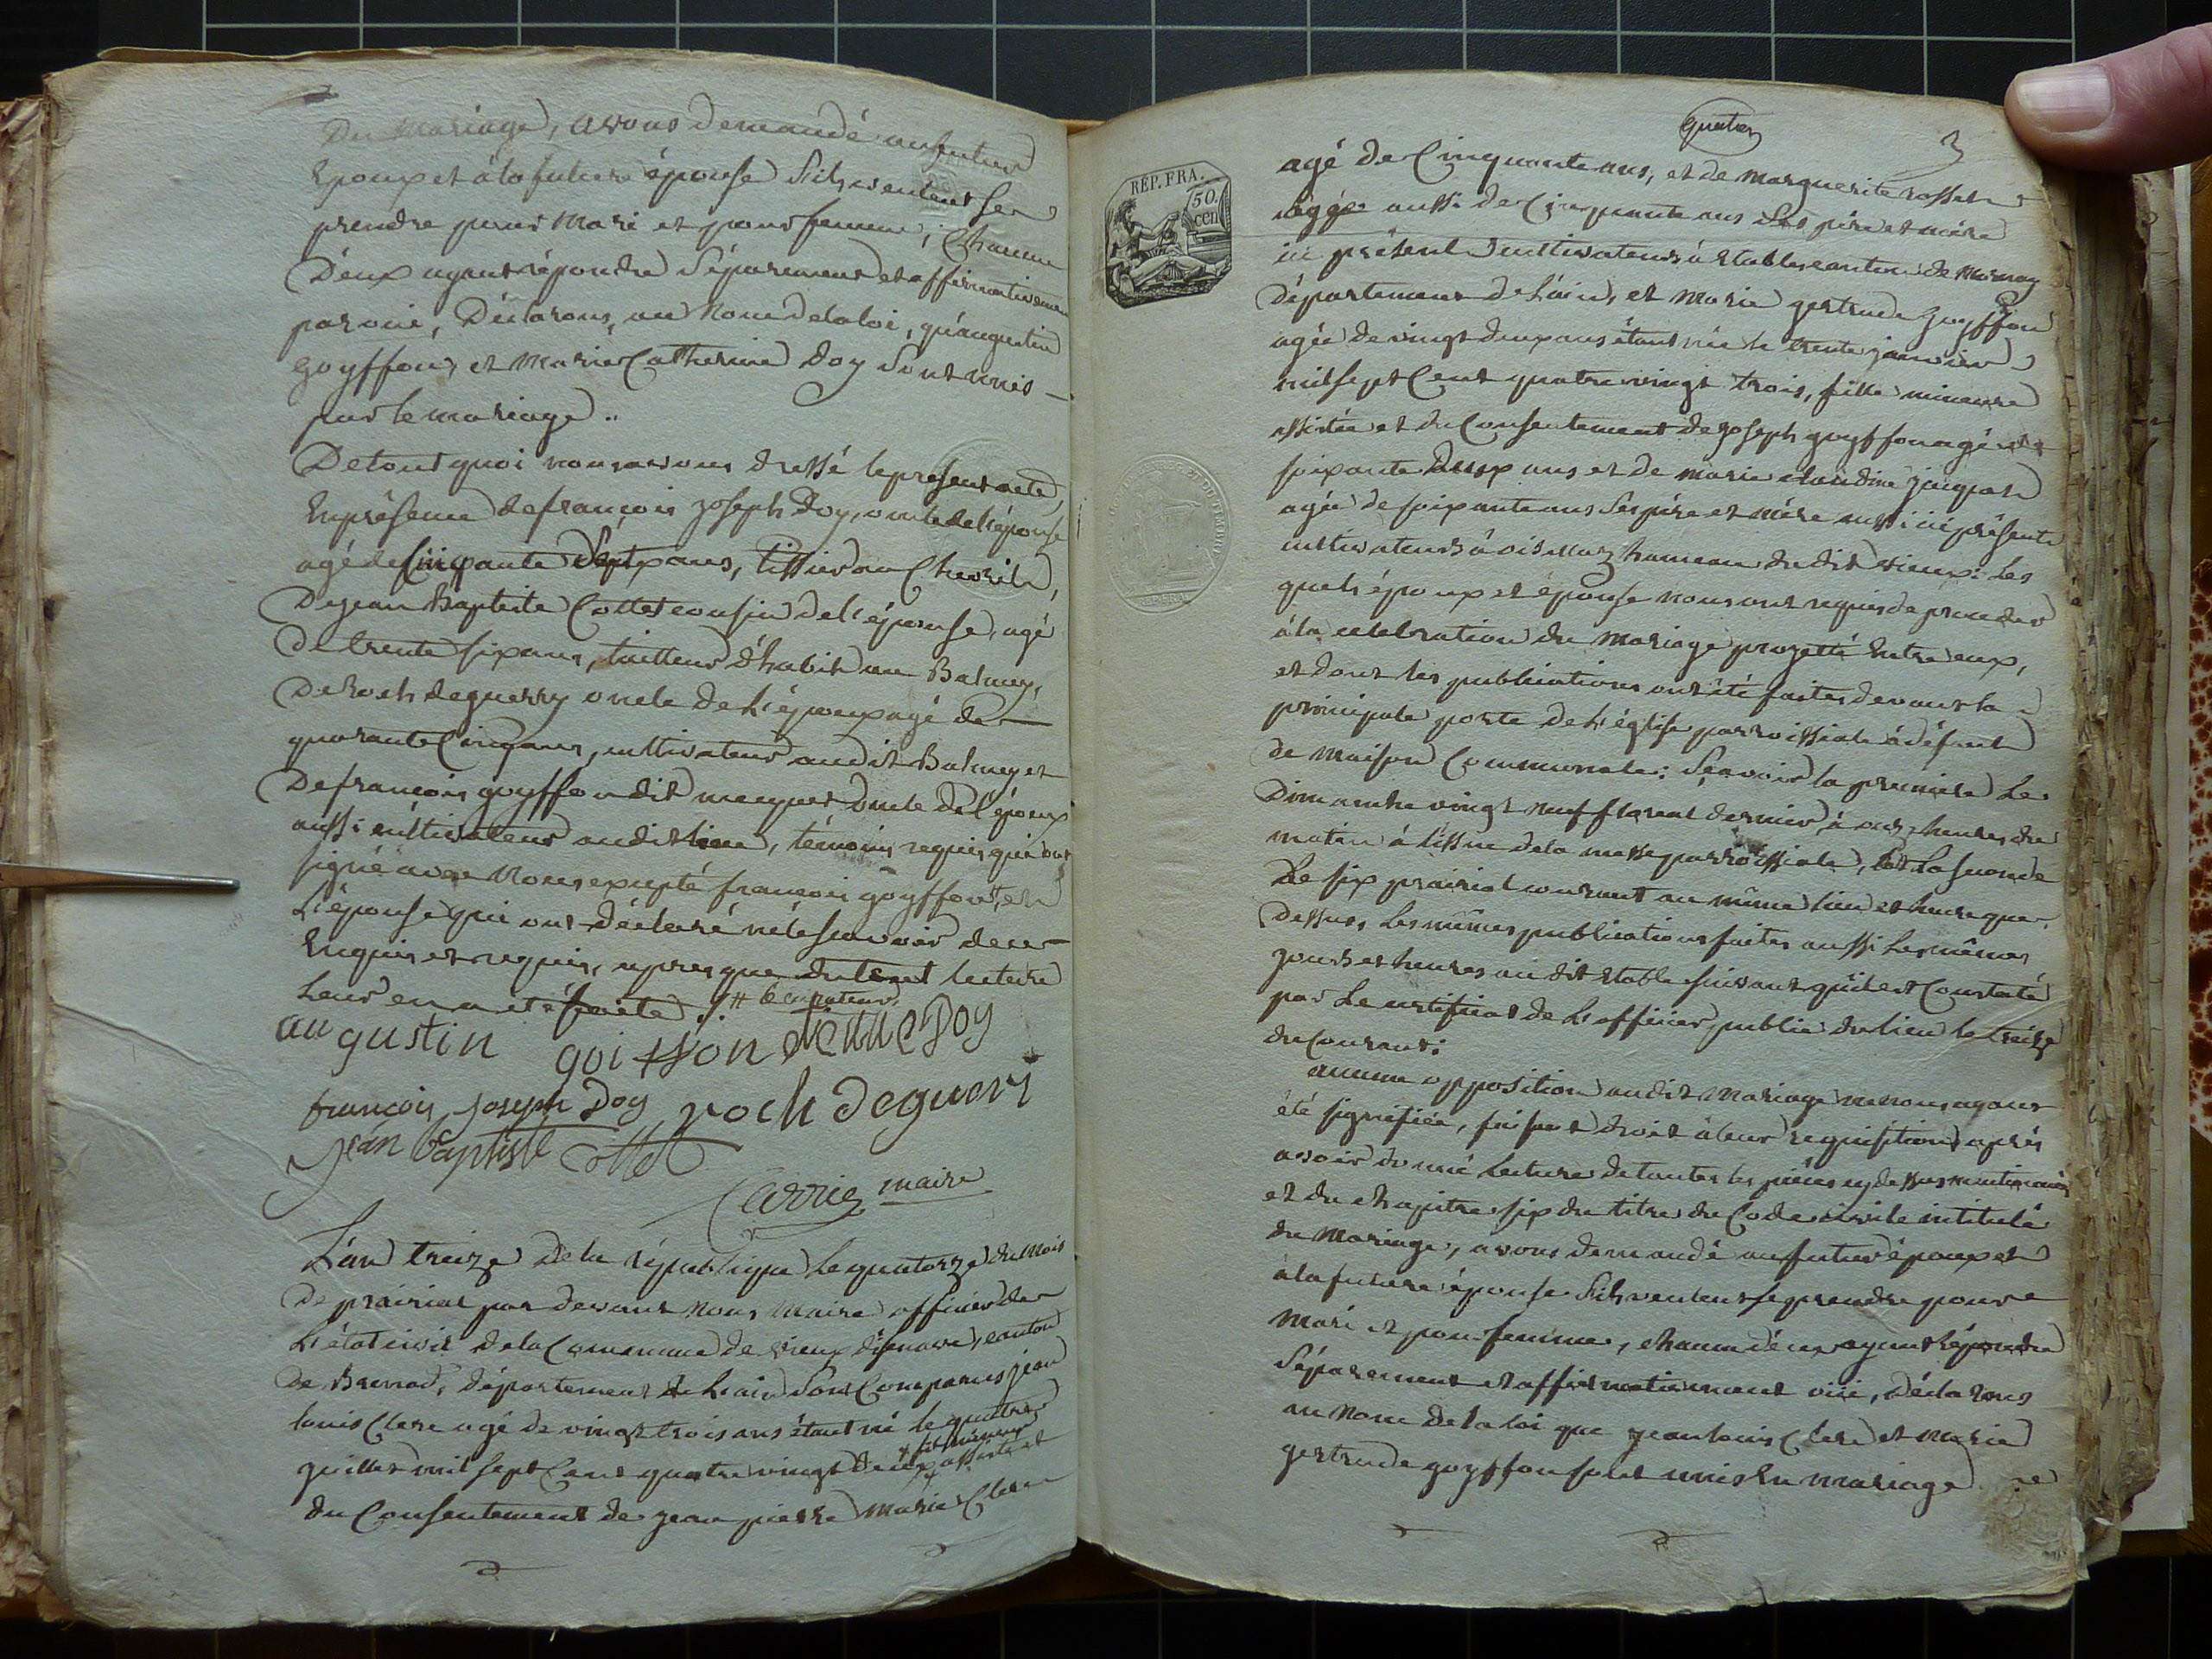 Du Mariage, avons demandé au futur
Epoux et à la future épouse s'ils veulent se
prendre pour Mari et pour femme, chacun
D'eux ayant répondu séparement et affirmativement
par oui, Déclarons, au Nom de la loi, qu'augustin
goyffon, et Marie Catherine Doy sont unis
par le mariage ..
De tout quoi nous avons dressé le present acte,
En présence de françois joseph Doy, oncle de l'épouse
agé de Cinquante Sept ans, tissier au
De jean Baptiste Cottet cousin de l'épouse, agé
De trente six ans, tailleur d'habit au Balmey,
De Roch deguerry oncle de L'époux agé de
quarante Cinq ans, cultivateur audit Balmey et
De françois goyffon dit oncle de l'époux
aussi cultivateur audit lieu, témoins requis qui ont
signé avec Nous excepté françois goyffon, et
L'épouse qui ont déclaré ne le scavoir de ce
Enquis et requis, apres que du tout lecture
Leur en a été faite ./.
augustin goiffon Doy
françois joseph Doy roch deguery
jean baptiste Cottet
Carrier maire
L'an treize De la république le quatorze du Mois
De prairial par devant Nous Maire officier de
L'état civil de la Commune de vieux d'isenave, canton
De Brenod, département de L'ain sont Comparus jean
louis Clerc agé de vingt trois ans étant né le quatre
juillet mil sept Cent quatre vingt deux fils mineur assisté et
du Consentement de jean pierre Marie Clerc
quatre
3
RÉP. FRA.
50. cen
agé de Cinquante ans, et de marguerite rosset
agée aussi de Cinquante ans ses père et mère
ici présent cultivateurs à Etables canton de
Département de L'ain, et Marie gertrude goyffon
agée de vingt deux ans étant née le trente janvier
mil sept Cent quatre vingt trois, fille mineure
assistée et du Consentement de joseph goyffon agé de
soixante Deux ans et de marie claudine
agée de soixante ans ses père et mère aussi ici présents
cultivateurs à oisellaz hameau du dit vieux: Les
quels époux et épouse nous ont requis de proceder
à la celebration du Mariage projetté Entre eux,
et dont les publications ont été faites devant la
principale porte de L'église parroissiale à défaut
de maison Communale; Sçavoir la premiere Le
Dimanche vingt neuf floreal dernier à onze heures du
matin à l'issue de la messe parroissiale, et La seconde
Le six prairial courant au même lieu et heure que
Dessus, Les mêmes publications faites aussi Les mêmes
jours et heures au dit Etable suivant qu'il est Constaté
par Le certificat de L'officier public du lieu le treize
du Courant;
aucune opposition audit Mariage ne nous ayant
été signifiée, faisant droit à leur requisition, après
avoir donné Lecture de toutes les pièces cy dessus mentionnées
et du chapitre six du titre du Code civile intitulé
du Mariage, avons demandé au futur époux et
à la future épouse s'ils veulent se prendre pour
Mari et pour femme, chacun d'eux ayant répondu
Séparement et affirmativement oui, déclarons
au Nom de la loi que jean louis Clerc et Marie
gertrude goyffon sont unis En mariage